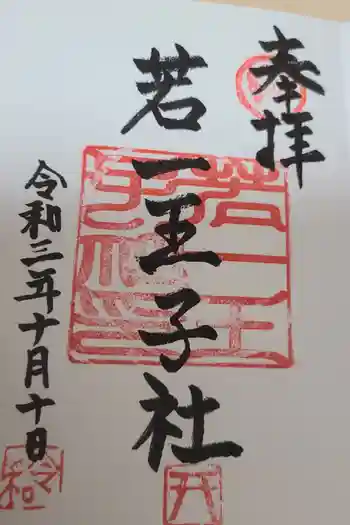 奉拝
若一王子社
令和三年十月十日
令和